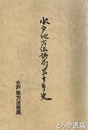 水戸地方法務局百年史
水戸地方法務局